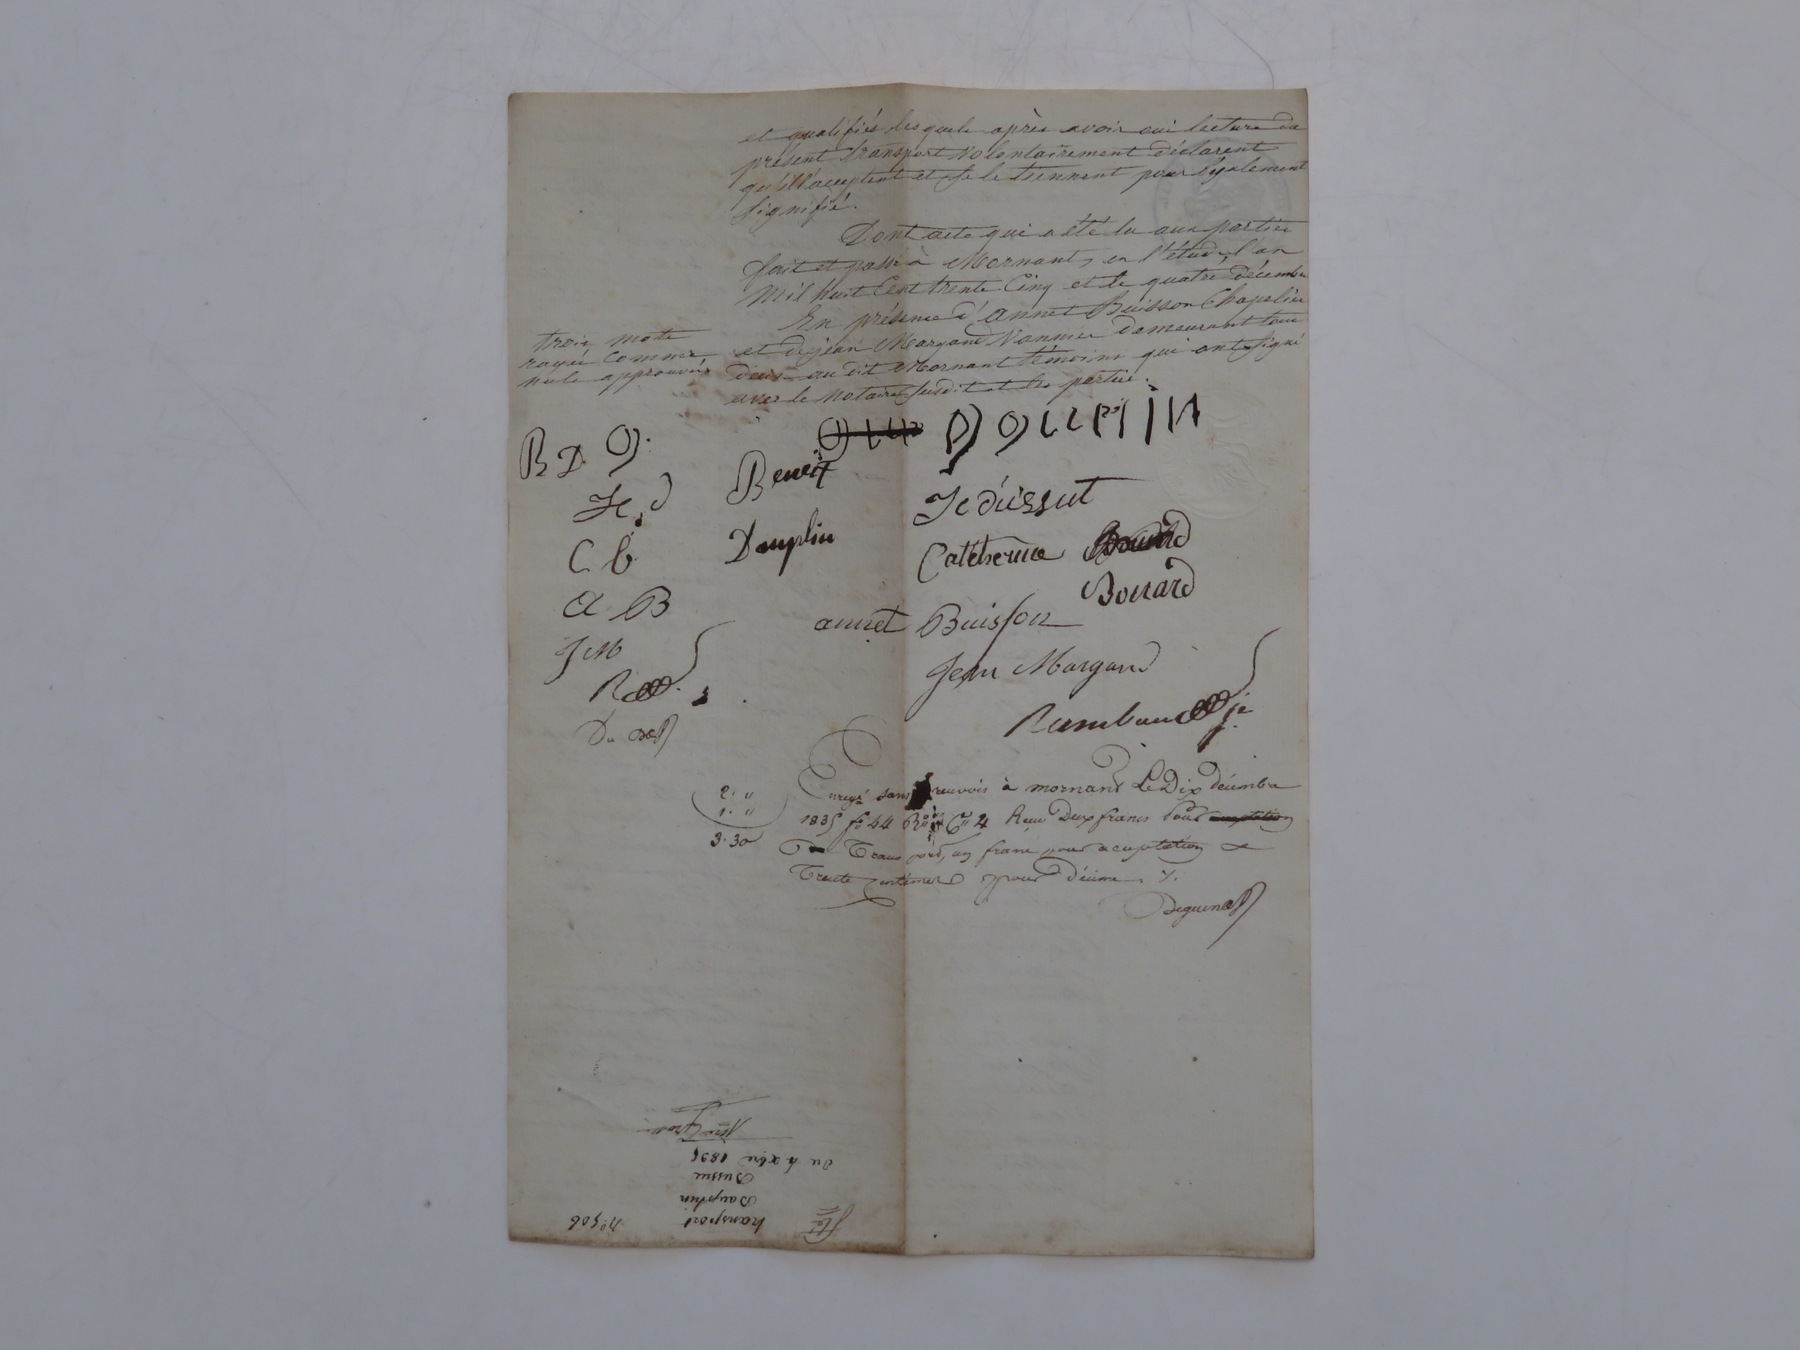 et qualifiés lesquels après avoir oui lecture du
présent transport volontairement déclarent
qu'ils l'acceptent et se le tiennent pour légalement
signifié.
Dont acte qui a été lu aux parties
fait et passé à Mornant, en l'étude, l'an
mil huit cent trente cinq et le quatre décembre
En présence d'annet Buisson Chapelier
et de jean Margand Vannier demeurant tous
deux au dit Mornant témoins qui ont signé
avec le notaire susdit et les parties.
trois mots
rayés comme
nuls approuvés
B D
Benoit
Dauphin
Catetherine
Bonard
C b
a B
annet Buisson
J M
Jean Margand
2. "
1. "
3. 30
Enregé sans renvois à mornant Le Dix décembre
1835 fo 44 Ro Cse 4 Reçu Deux francs pour
Transport, un franc pour acceptation &
Trente centimes pour décime
No 506
transport
Dauphin
Dussue
du 4 xbre 1835